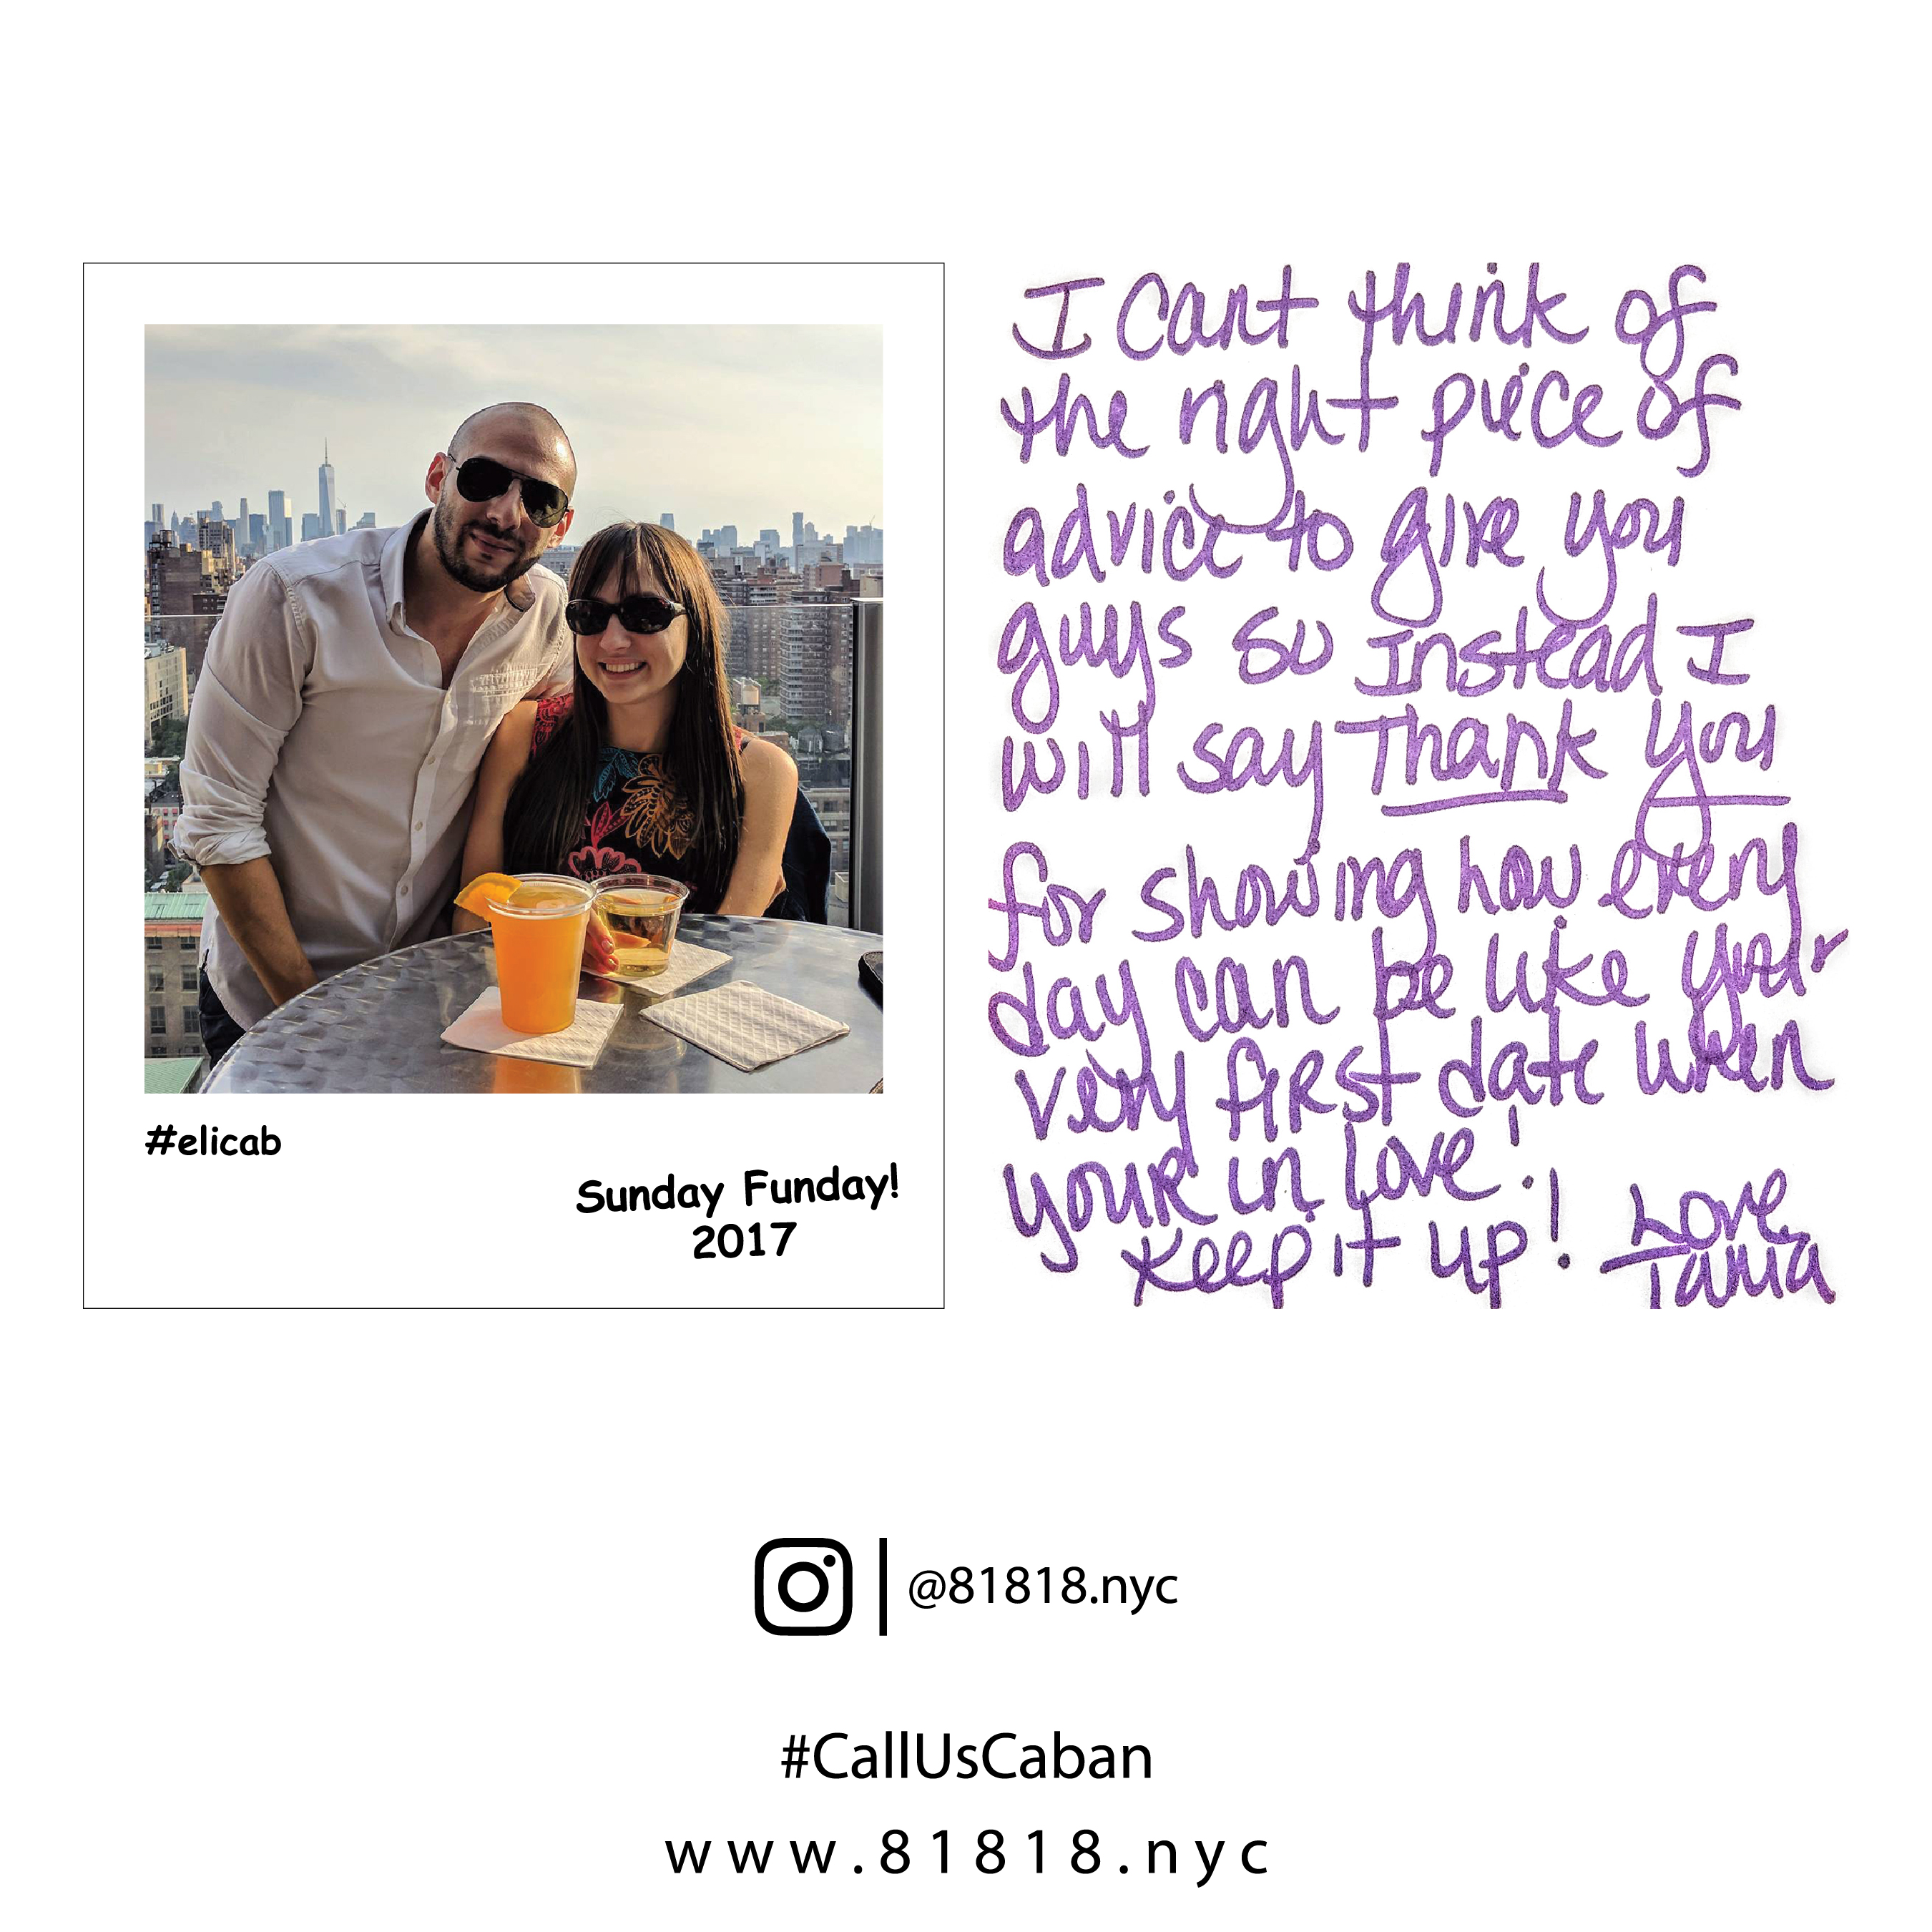 #elicab
Sunday Funday!
2017
I cant think of
the right piece of
advice to give you
guys so Instead I
will say Thank you
for showing how every
day can be like your
very first date when
your in love!
Keep it up!
Love,
Tania
@81818.nyc
#CallUsCaban
www.81818.nyc